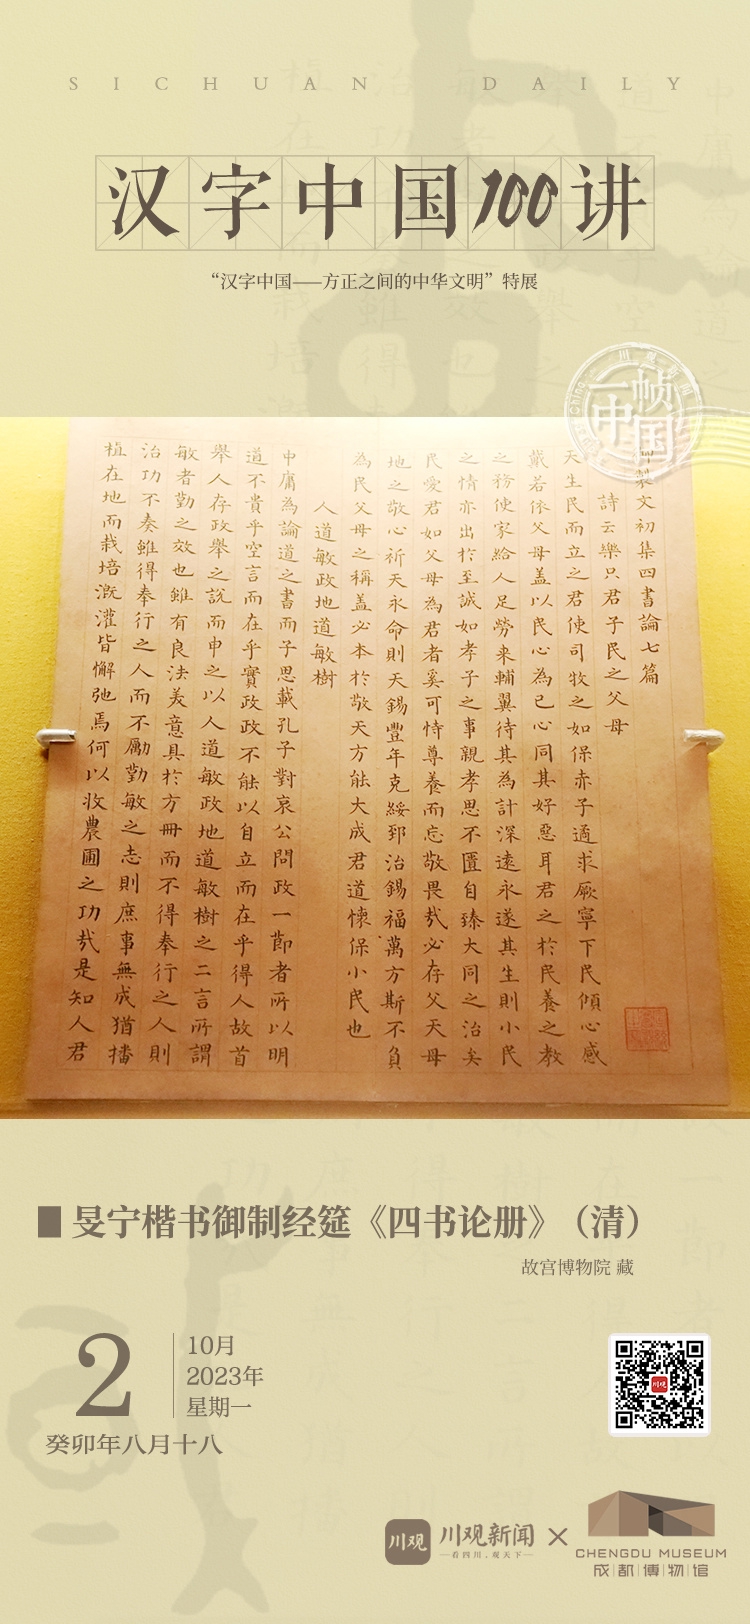 SICHUAN DAILY
汉字中国100讲
“汉字中国——方正之间的中华文明”特展
川观新闻
一帧中国
China
御製文初集四書論七篇
詩云樂只君子民之父母
天生民而立之君使司牧之如保赤子適求厥寧下民傾心感
戴若依父母盖以民心為己心同其好惡耳君之於民養之教
之務使家給人足勞来輔翼待其為計深遠永遂其生則小民
之情亦出於至誠如孝子之事親孝思不匱自臻大同之治矣
民愛君如父母為君者奚可恃尊養而忘敬畏哉必存父天母
地之敬心祈天永命則天錫豐年克綏郅治錫福萬方斯不負
為民父母之稱盖必本於敬天方能大成君道懷保小民也
人道敏政地道敏樹
中庸為論道之書而子思載孔子對哀公問政一節者所以明
道不貴乎空言而在乎實政政不能以自立而在乎得人故首
舉人存政舉之説而申之以人道敏政地道敏樹之二言所謂
敏者勤之效也雖有良法美意具於方冊而不得奉行之人則
治功不奏雖得奉行之人而不勵勤敏之志則庶事無成猶播
植在地而栽培溉灌皆懈弛焉何以收農圃之功哉是知人君
旻宁楷书御制经筵《四书论册》（清）
故宫博物院 藏
2
10月
2023年
星期一
癸卯年八月十八
川观
川观
川观新闻
—看四川，观天下—
×
CHENGDU MUSEUM
成都博物馆